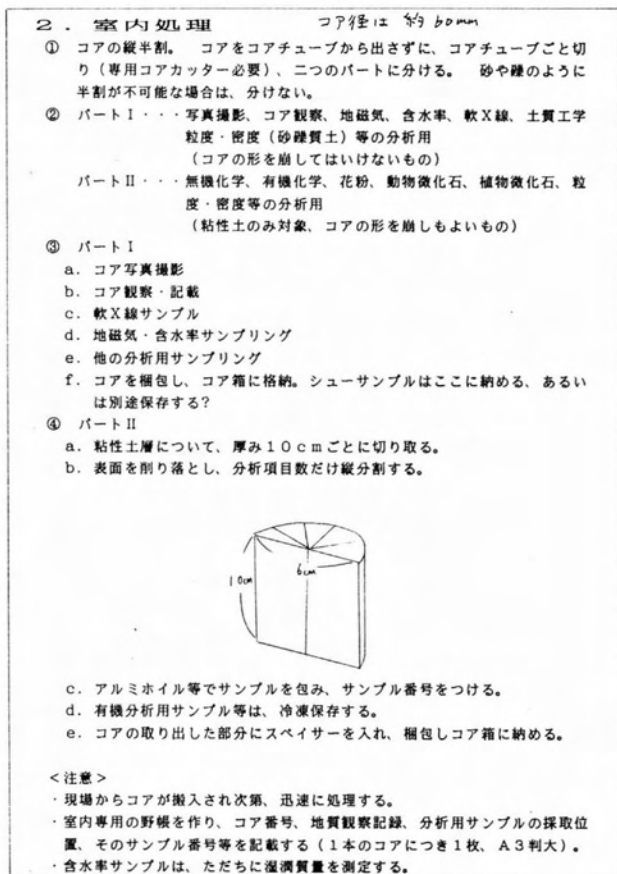 ２．室内処理　　コア径は 約60mm
① コアの縦半割。　コアをコアチューブから出さずに、コアチューブごと切
り（専用コアカッター必要）、二つのパートに分ける。　砂や礫のように
半割が不可能な場合は、分けない。
② パートⅠ・・・写真撮影、コア観察、地磁気、含水率、軟Ｘ線、土質工学
粒度・密度（砂礫質土）等の分析用
（コアの形を崩してはいけないもの）
パートⅡ・・・無機化学、有機化学、花粉、動物微化石、植物微化石、粒
度・密度等の分析用
（粘性土のみ対象、コアの形を崩しもよいもの）
③ パートⅠ
ａ．コア写真撮影
ｂ．コア観察・記載
ｃ．軟Ｘ線サンプル
ｄ．地磁気・含水率サンプリング
ｅ．他の分析用サンプリング
ｆ．コアを梱包し、コア箱に格納。シューサンプルはここに納める、あるい
は別途保存する？
④ パートⅡ
ａ．粘性土層について、厚み１０ｃｍごとに切り取る。
ｂ．表面を削り落とし、分析項目数だけ縦分割する。
10cm
6cm
ｃ．アルミホイル等でサンプルを包み、サンプル番号をつける。
ｄ．有機分析用サンプル等は、冷凍保存する。
ｅ．コアの取り出した部分にスペイサーを入れ、梱包しコア箱に納める。
＜注意＞
・現場からコアが搬入され次第、迅速に処理する。
・室内専用の野帳を作り、コア番号、地質観察記録、分析用サンプルの採取位
置、そのサンプル番号等を記載する（１本のコアにつき１枚、Ａ３判大）。
・含水率サンプルは、ただちに湿潤質量を測定する。